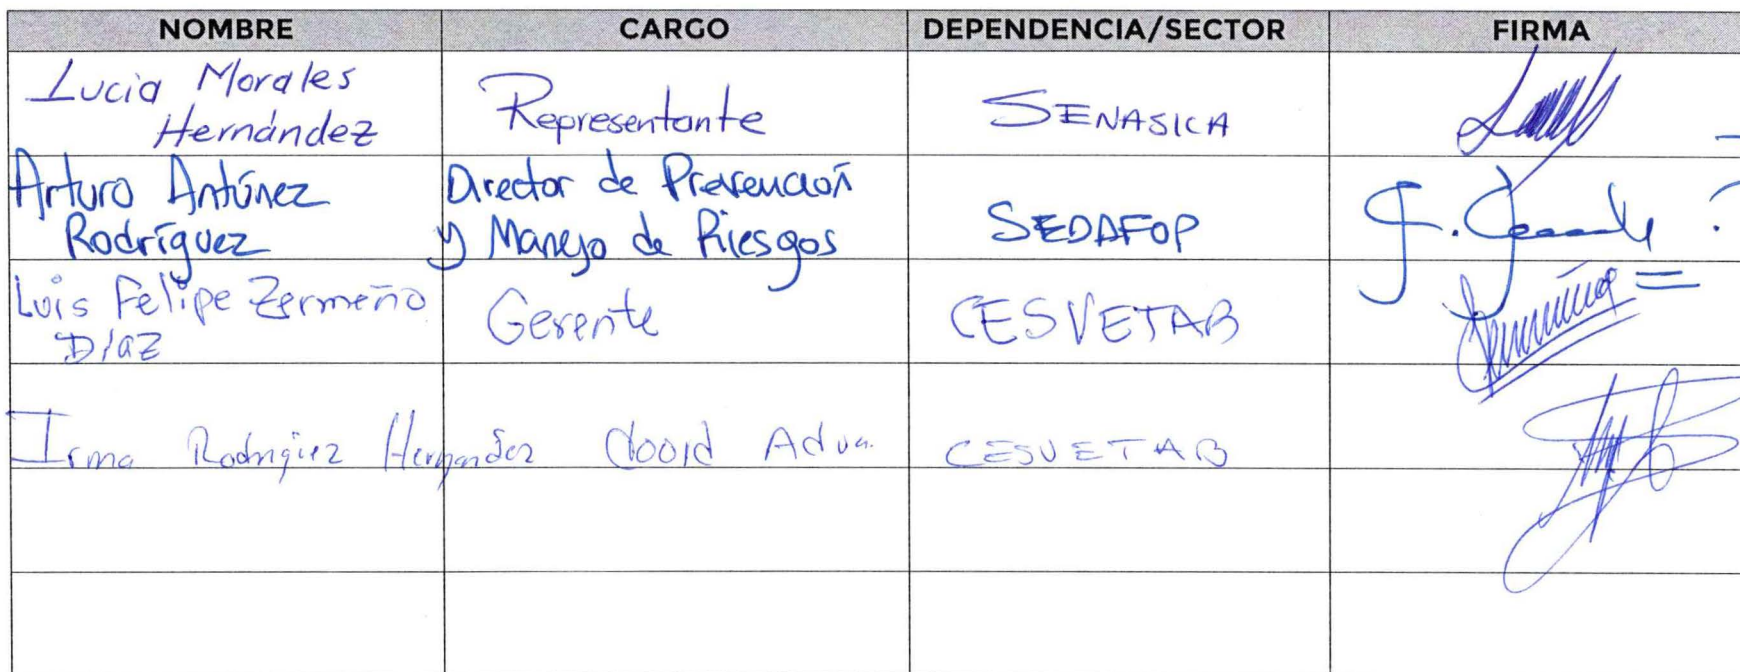 NOMBRE CARGO DEPENDENCIA/SECTOR FIRMA
Lucia Morales
Hernández Representante SENASICA
Arturo Antúnez Director de Prevención
Rodríguez y Manejo de Riesgos SEDAFOP
Luis Felipe Zermeño
Díaz Gerente CESVETAB
Irma Rodríguez Hernández Coord Adva. CESVETAB